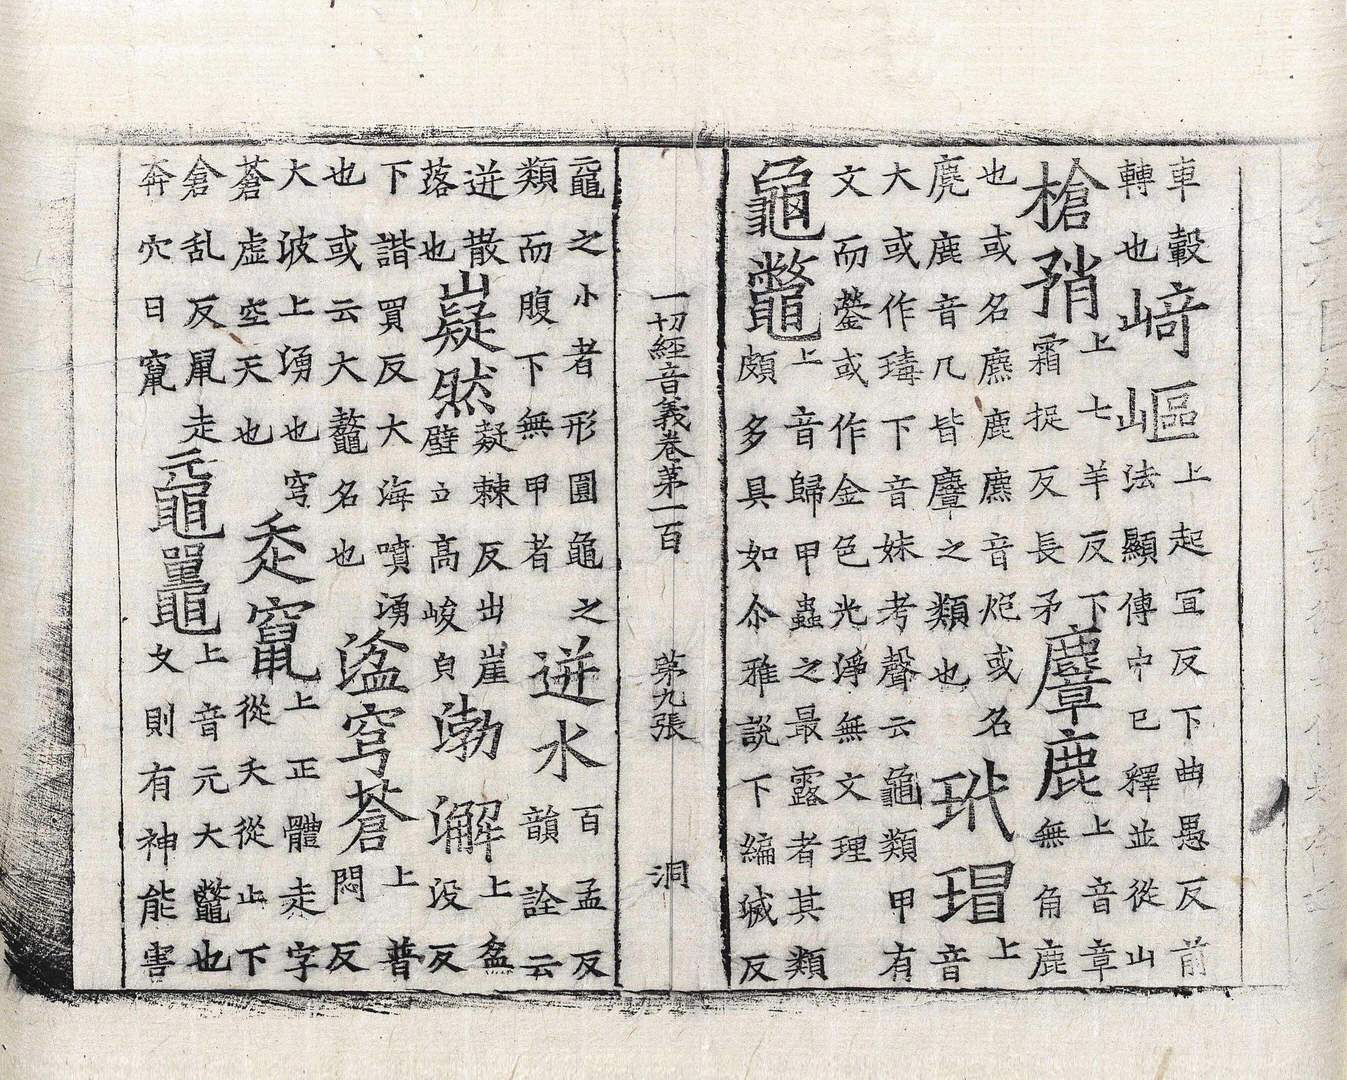 車轂
轉也
崎嶇
上起宜反下曲愚反前
法顯傳中已釋並從山
槍矟
上七羊反下
霜捉反長矛
麞鹿
上音章
無角鹿
也或名麃鹿麃音炮或名
麂鹿音几皆麞之類也
玳瑁
上
音
大或作瑇下音妹考聲云龜類甲有
文而瑩或作金色光淨無文理
龜鼈
上音歸甲蟲之最露者其類
頗多具如尒雅說下編滅反
一切經音義卷第一百 第九張 洞
黿之小者形圓龜之
類而腹下無甲者
迸水
百孟反
韻詮云
迸散
落也
嶷然
嶷棘反出崖
壁立高峻皃
渤澥
上盆
没反
下諧買反大海噴湧
也或云大鼇名也
湓穹蒼
上普
悶反
大波上湧也穹
蒼虛空天也
𧺆竄
上正體走字
從夭從止下
倉乱反鼠走
奔穴曰竄
黿鼉
上音元大鼈也
文則有神能害